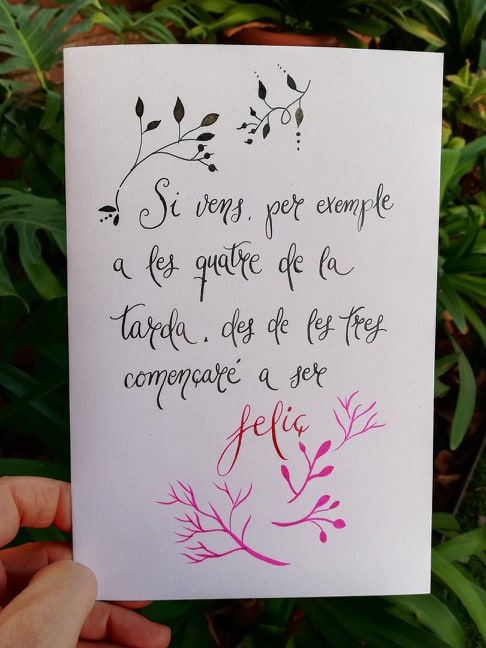 Si vens, per exemple
a les quatre de la
tarda, des de les tres
començaré a ser
feliç